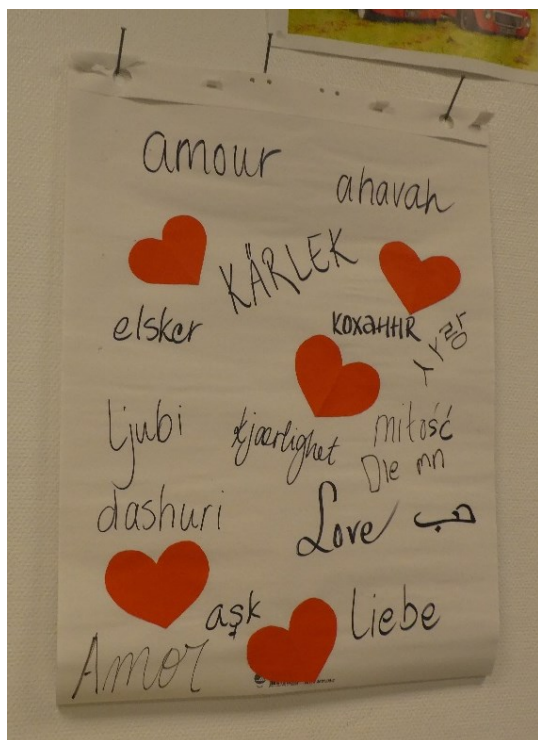 amour
ahavah
KÄRLEK
elsker
кохання
사랑
ljubi
kjærlighet
miłość
dashuri
Love
حب
aşk
liebe
Amor